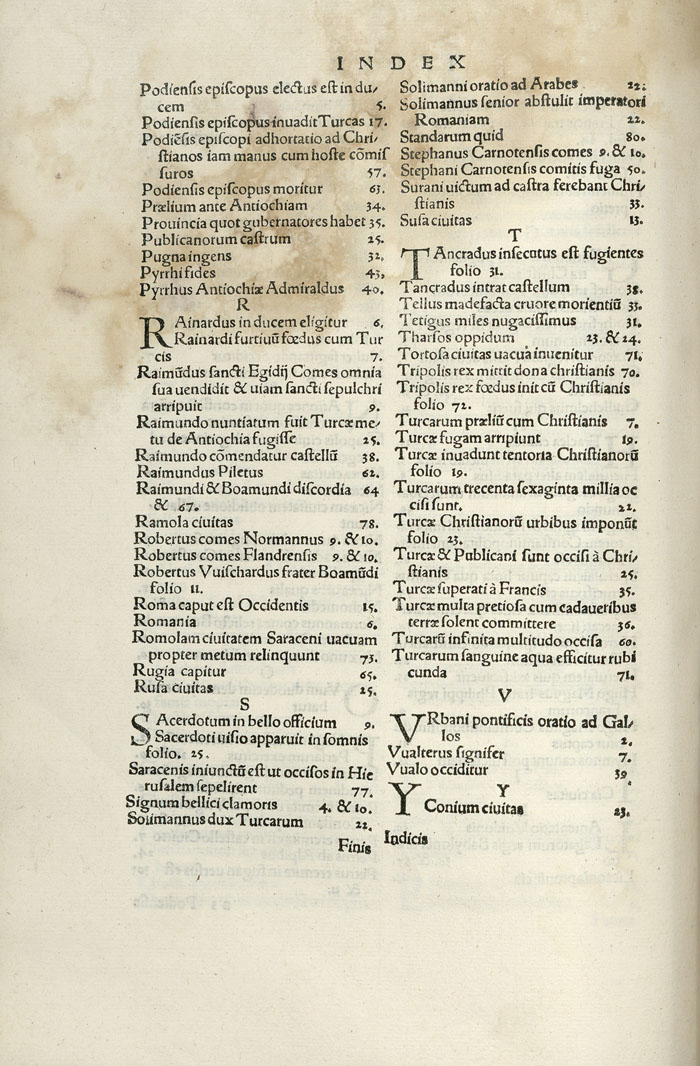 INDEX
Podiensis episcopus electus est in du/
cem 5.
Podiensis episcopus inuadit Turcas 17.
Podiēsis episcopi adhortatio ad Chri/
stianos iam manus cum hoste cōmiſ
suros 57.
Podiensis episcopus moritur 63.
Prælium ante Antiochiam 34.
Prouincia quot gubernatores habet 35.
Publicanorum castrum 25.
Pugna ingens 32.
Pyrrhi fides 43.
Pyrrhus Antiochiæ Admiraldus 40.
R
RAinardus in ducem eligitur 6.
Rainardi furtiuū fœdus cum Tur
cis 7.
Raimūdus sancti Egidij Comes omnia
sua uendidit & uiam sancti sepulchri
arripuit 9.
Raimundo nuntiatum fuit Turcæ me/
tu de Antiochia fugisse 25.
Raimundo cōmendatur castellū 38.
Raimundus Piletus 62.
Raimundi & Boamundi discordia 64
& 67.
Ramola ciuitas 78.
Robertus comes Normannus 9. & 10.
Robertus comes Flandrensis 9. & 10.
Robertus Vuischardus frater Boamūdi
folio 11.
Roma caput est Occidentis 15.
Romania 6.
Romolam ciuitatem Saraceni uacuam
propter metum relinquunt 73.
Rugia capitur 65.
Rusa ciuitas 25.
S
SAcerdotum in bello officium 9.
Sacerdoti uisio apparuit in somnis
folio. 25.
Saracenis iniunctū est ut occisos in Hie
rusalem sepelirent 77.
Signum bellici clamoris 4. & 10.
Solimannus dux Turcarum 22.
Solimanni oratio ad Arabes 22.
Solimannus senior abstulit imperatori
Romaniam 22.
Standarum quid 80.
Stephanus Carnotensis comes 9. & 10.
Stephani Carnotensis comitis fuga 50.
Surani uictum ad castra ferebant Chri/
stianis 33.
Susa ciuitas 13.
T
TAncradus insecutus est fugientes
folio 31.
Tancradus intrat castellum 38.
Tellus madefacta cruore morientiū 33.
Tetigus miles nugacissimus 31.
Tharsos oppidum 23. & 24.
Tortosa ciuitas uacua inuenitur 71.
Tripolis rex mittit dona christianis 70.
Tripolis rex fœdus init cū Christianis
folio 72.
Turcarum præliū cum Christianis 7.
Turcæ fugam arripiunt 19.
Turcæ inuadunt tentoria Christianorū
folio 19.
Turcarum trecenta sexaginta millia oc
cisi sunt. 22.
Turcæ Christianorū urbibus imponūt
folio 23.
Turcæ & Publicani sunt occisi à Chri/
stianis 25.
Turcæ superati à Francis 35.
Turcæ multa pretiosa cum cadaueribus
terræ solent committere 36.
Turcarū infinita multitudo occisa 60.
Turcarum sanguine aqua efficitur rubi
cunda 71.
V
VRbani pontificis oratio ad Gal/
los 2.
Vualterus signifer 7.
Vualo occiditur 39
Y
YConium ciuitas 23.
Finis Indicis